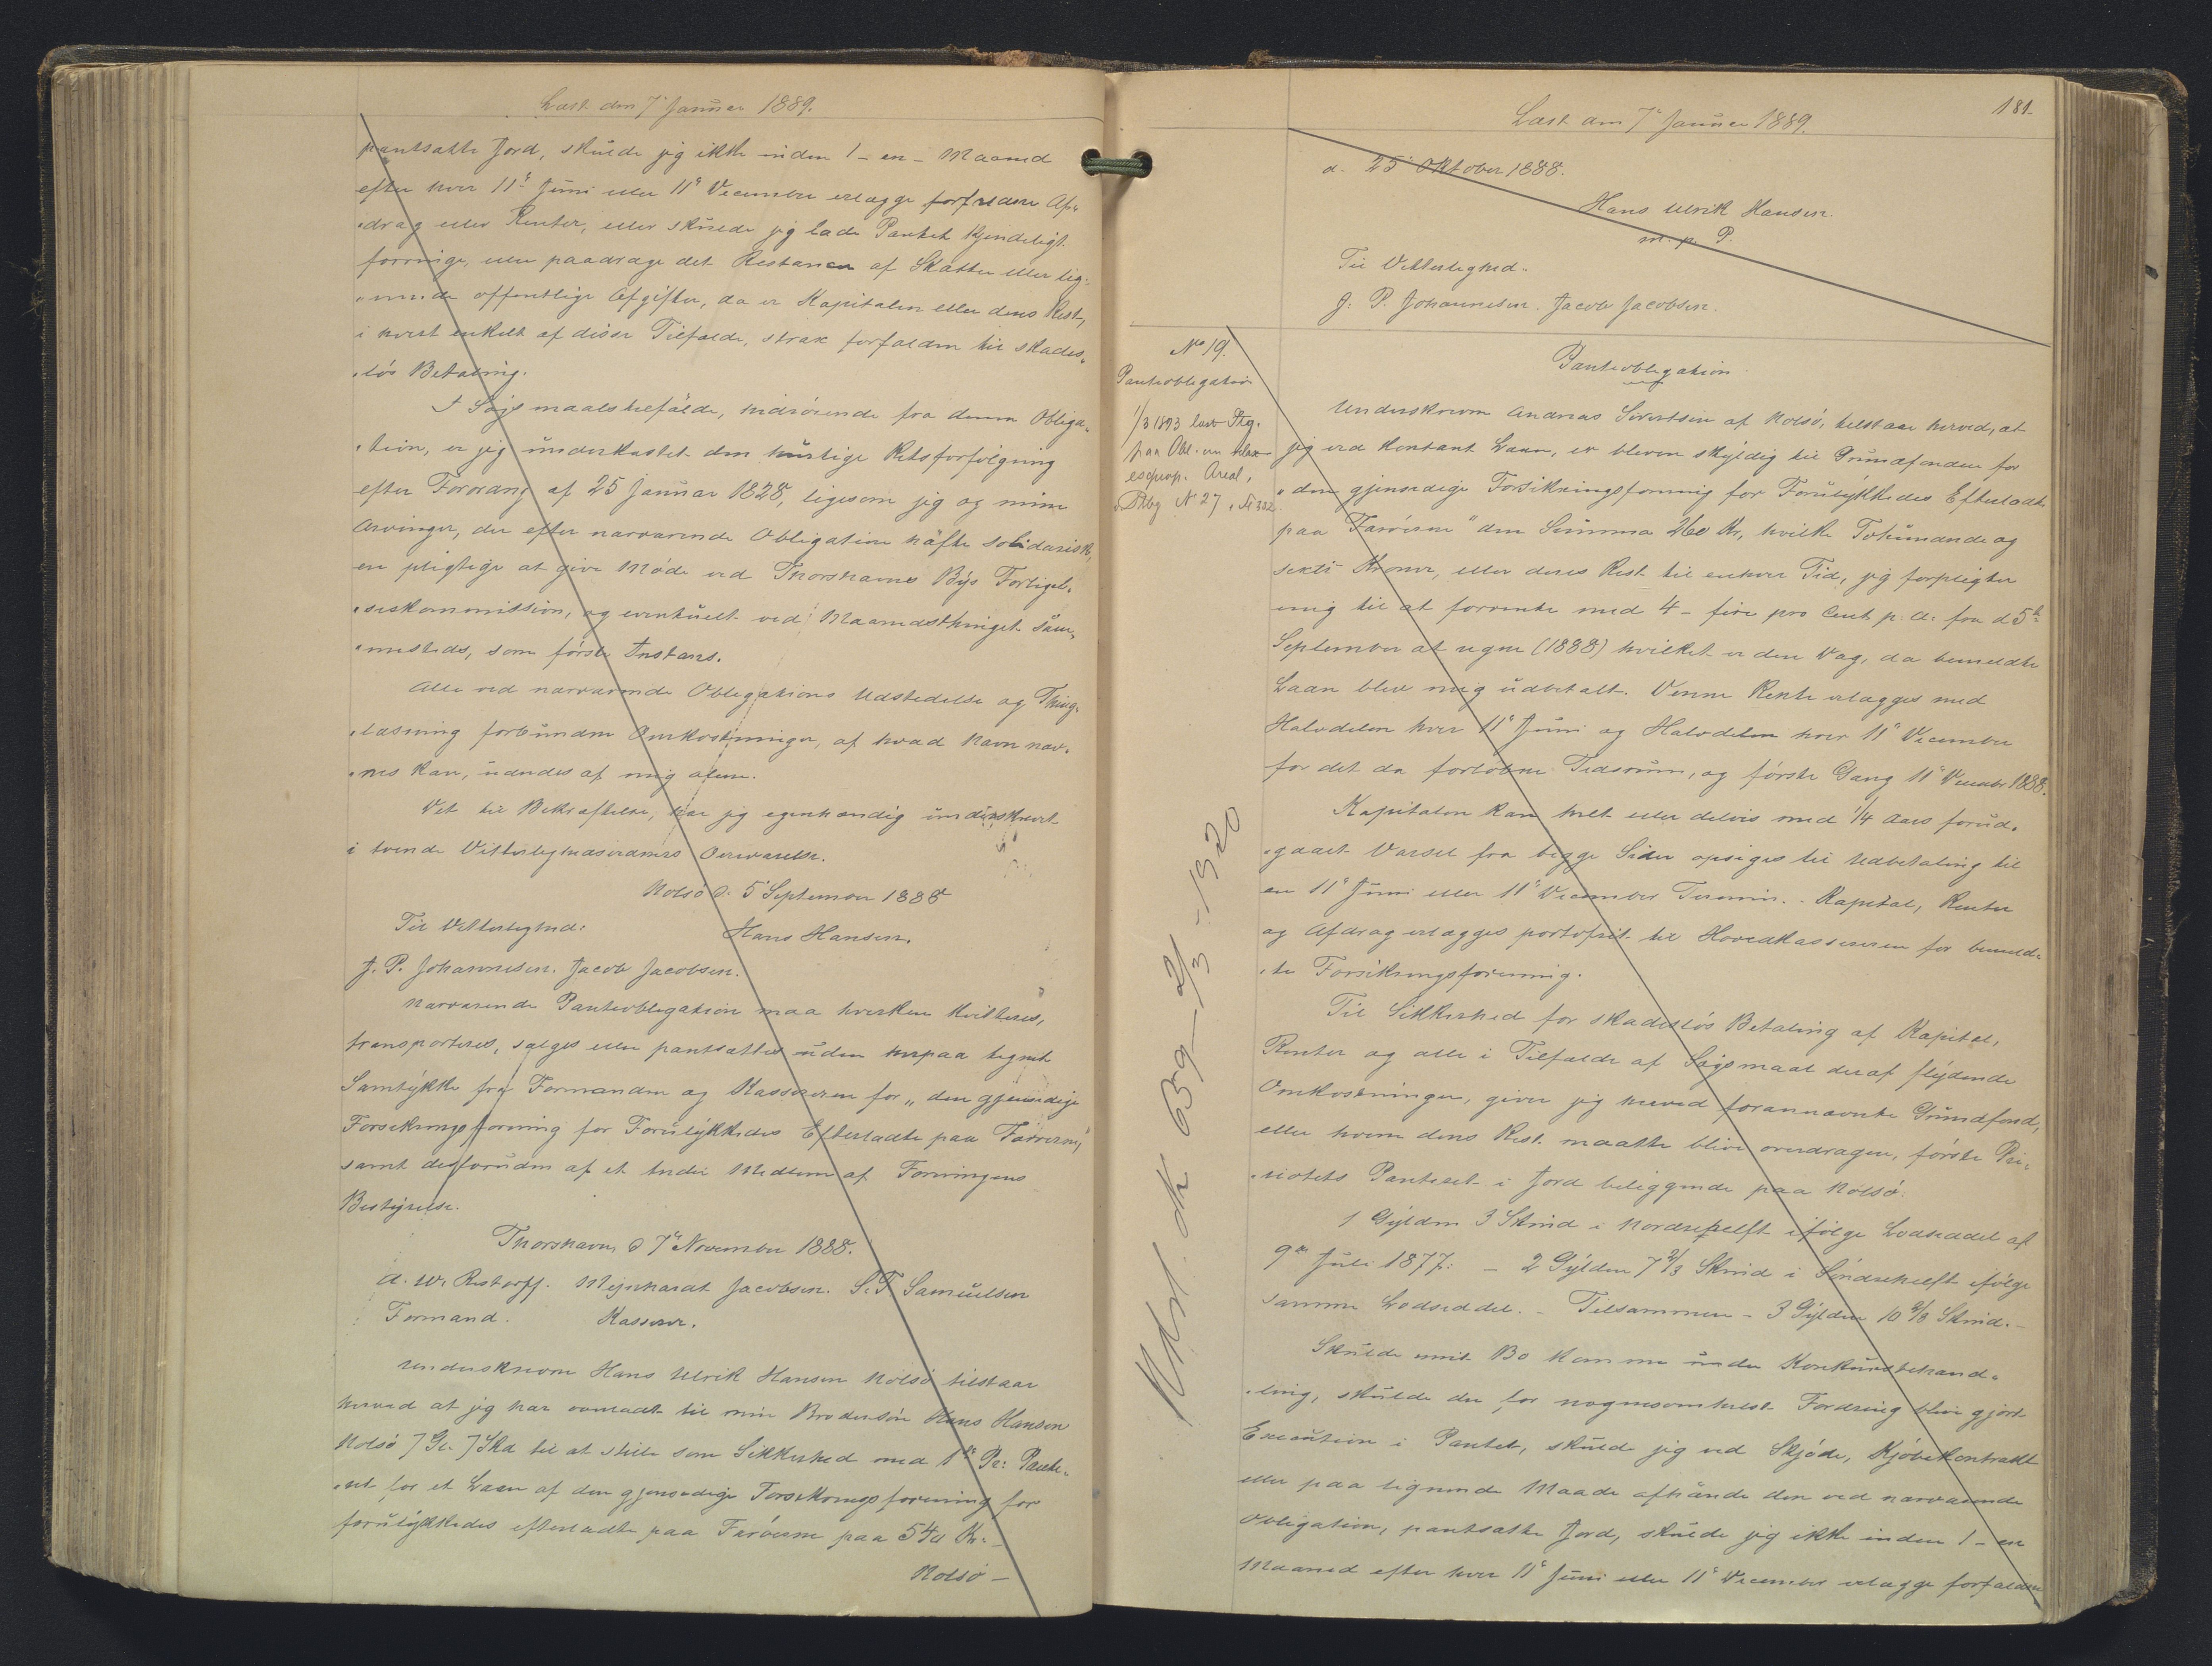 Læst den 7de Januar 1889.
pantsatte Jord, skulde jeg ikke inden 1 - en - Maaned
efter hver 11te Juni eller 11te December erlægge forfaldne Af„
„drag eller Renter, eller skulde jeg lade Pantet kjendeligt
forringe, eller paadrage det Restancer af Skatter eller lig„
„nende offentlige Afgifter, da er Kapitalen eller dens Rest,
i hvert enkelt af disse Tilfælde, strax forfalden til skades„
„løs Betaling.
I Søgsmaalstilfælde, hidrørende fra denne Obliga„
„tion, er jeg underkastet den hurtige Retsforfølgning
efter Forordng af 25 Januar 1828, ligesom jeg og mine
Arvinger, der efter nærværende Obligation hæfte solidarisk,
ere pligtige at give Møde ved Thorshavns Bys Forligel„
„seskommission, og eventuelt ved Maanedsthinget sam„
„mesteds, som første Instans.
Alle ved nærværende Obligations Udstedelse og Thing„
„læsning forbundne Omkostninger, af hvad Navn næv„
„nes kan, udredes af mig alene.
Det til Bekræftelse, har jeg egenhændig underskrevet
i tvende Vitterlighedsvidners Overværelse.
Nolsø d. 5te September 1888
Til Vitterlighed: Hans Hansen.
J. P. Johannesen. Jacob Jacobsen.
Nærværende Panteobligation maa hverken kvitteres,
transporteres, sælges eller pantsættes uden herpaa tegnet
Samtykke fra Formanden og Kassereren for „den gjensidige
Forsikringsforening for Forulykkedes Efterladte paa Færøerne,"
samt desforuden af et tredie Medlem af Foreningens
Bestyrelse.
Thorshavn, d 7de November 1888.
A. W. Restorff. Mejnhardt Jacobsen. S. F. Samuelsen
Formand. Kasserer.
Underskrevne Hans Ulrik Hansen Nolsø tilstaar
herved at jeg har overladt til min Brodersøn Hans Hansen
Nolsø 7 Gl. 7 Skd til at stille som Sikkerhed med 1ste Pr: Pante„
„ret for et Laan af den gjensidige Forsikringsforening for
forulykkedes efterladte paa Færøerne paa 540 Kr. -
Nolsø -
181.
Læst den 7de Januar 1889.
d. 25de Oktober 1888.
Hans Ulrik Hansen.
m. p. P.
Til Vitterlighed.
J. P. Johannesen. Jacob Jacobsen.
No 19.
Panteobligation
1/3 1893 læst Ptg.
paa Obl. om
Areal,
Ptbg No 27
Udsl. 639 - 2/3 - 1920
Panteobligation
Underskrevne Andreas Sivertsen af Nolsø, tilstaar herved, at
jeg ved kontant Laan, er bleven skyldig til Grundfonden for
„den gjensidige Forsikringsforening for Forulykkedes Efterladte
paa Færøerne" den Summa 260 Kr, hvilke Tohundrede og
sexti Kroner, eller deres Rest til enhver Tid, jeg forpligter
mig til at forrente med 4 - fire pro Cent p. a. fra d 5te
September at regne (1888) hvilket er den Dag, da bemeldte
Laan blev mig udbetalt. Denne Rente erlægges med
Halvdelen hver 11te Juni og Halvdelen hver 11te December
for det da forløbne Tidsrum, og første Gang 11te Decembr 1888.
Kapitalen kan helt eller delvis med 1/4 Aars forud„
„gaaet Varsel fra begge Sider opsiges til Udbetaling til
en 11te Juni eller 11te December Termin. - Kapital, Renter
og Afdrag erlægges portofrit til Hovedkassereren for bemeld„
„te Forsikringsforening.
Til Sikkerhed for skadesløs Betaling af Kapital,
Renter og alle i Tilfælde af Søgsmaal deraf flydende
Omkostninger, giver jeg herved forannævnte Grundfond,
eller hvem dens Rest maatte blive overdragen, første Pri„
„oritets Panteret i Jord beliggende paa Nolsø.
1 Gylden 3 Skind i Nordrehelft ifølge Lodseddel af
9de Juli 1877: - 2 Gylden 7 2/3 Skind i Søndrehelft ifølge
samme Lodseddel. - Tilsammen - 3 Gylden 10 2/3 Skind. -
Skulde mit Bo komme under Konkursbehand„
„ling, skulde der for nogensomhelst Fordring blive gjort
Execution i Pantet, skulde jeg ved Skjøde, Kjøbekontrakt
eller paa lignende Maade afhænde den ved nærværende
Obligation, pantsatte Jord, skulde jeg ikke inden 1 - en
Maaned efter hver 11te Juni eller 11te December erlægge forfaldne